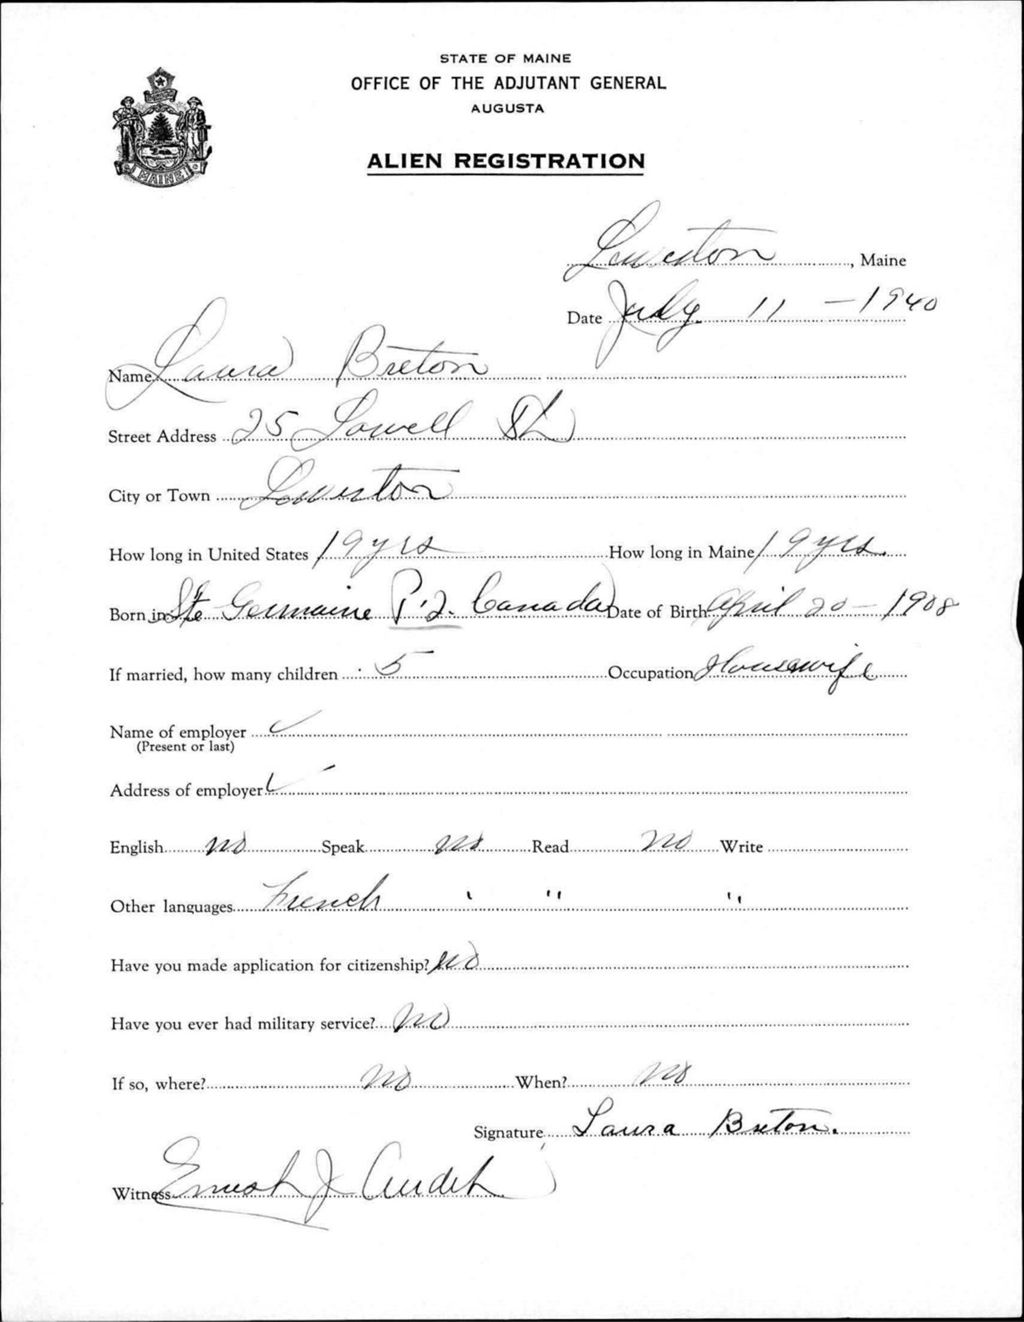 STATE OF MAINE
OFFICE OF THE ADJUTANT GENERAL
AUGUSTA
ALIEN REGISTRATION
MAINE
Lewiston, Maine
Date July 11 - 1940
Name Laura Breton
Street Address 25 Lowell St
City or Town Lewiston
How long in United States 19 yrs How long in Maine 19 yrs.
Born in Ste Germaine P.Q. Canada Date of Birth April 20 - 1908
If married, how many children 5 Occupation Housewife
Name of employer ✓
(Present or last)
Address of employer ✓
English no Speak no Read no Write
Other languages French " " "
Have you made application for citizenship? no
Have you ever had military service? no
If so, where? no When? no
Signature Laura Breton.
Witness Ernest J Audet